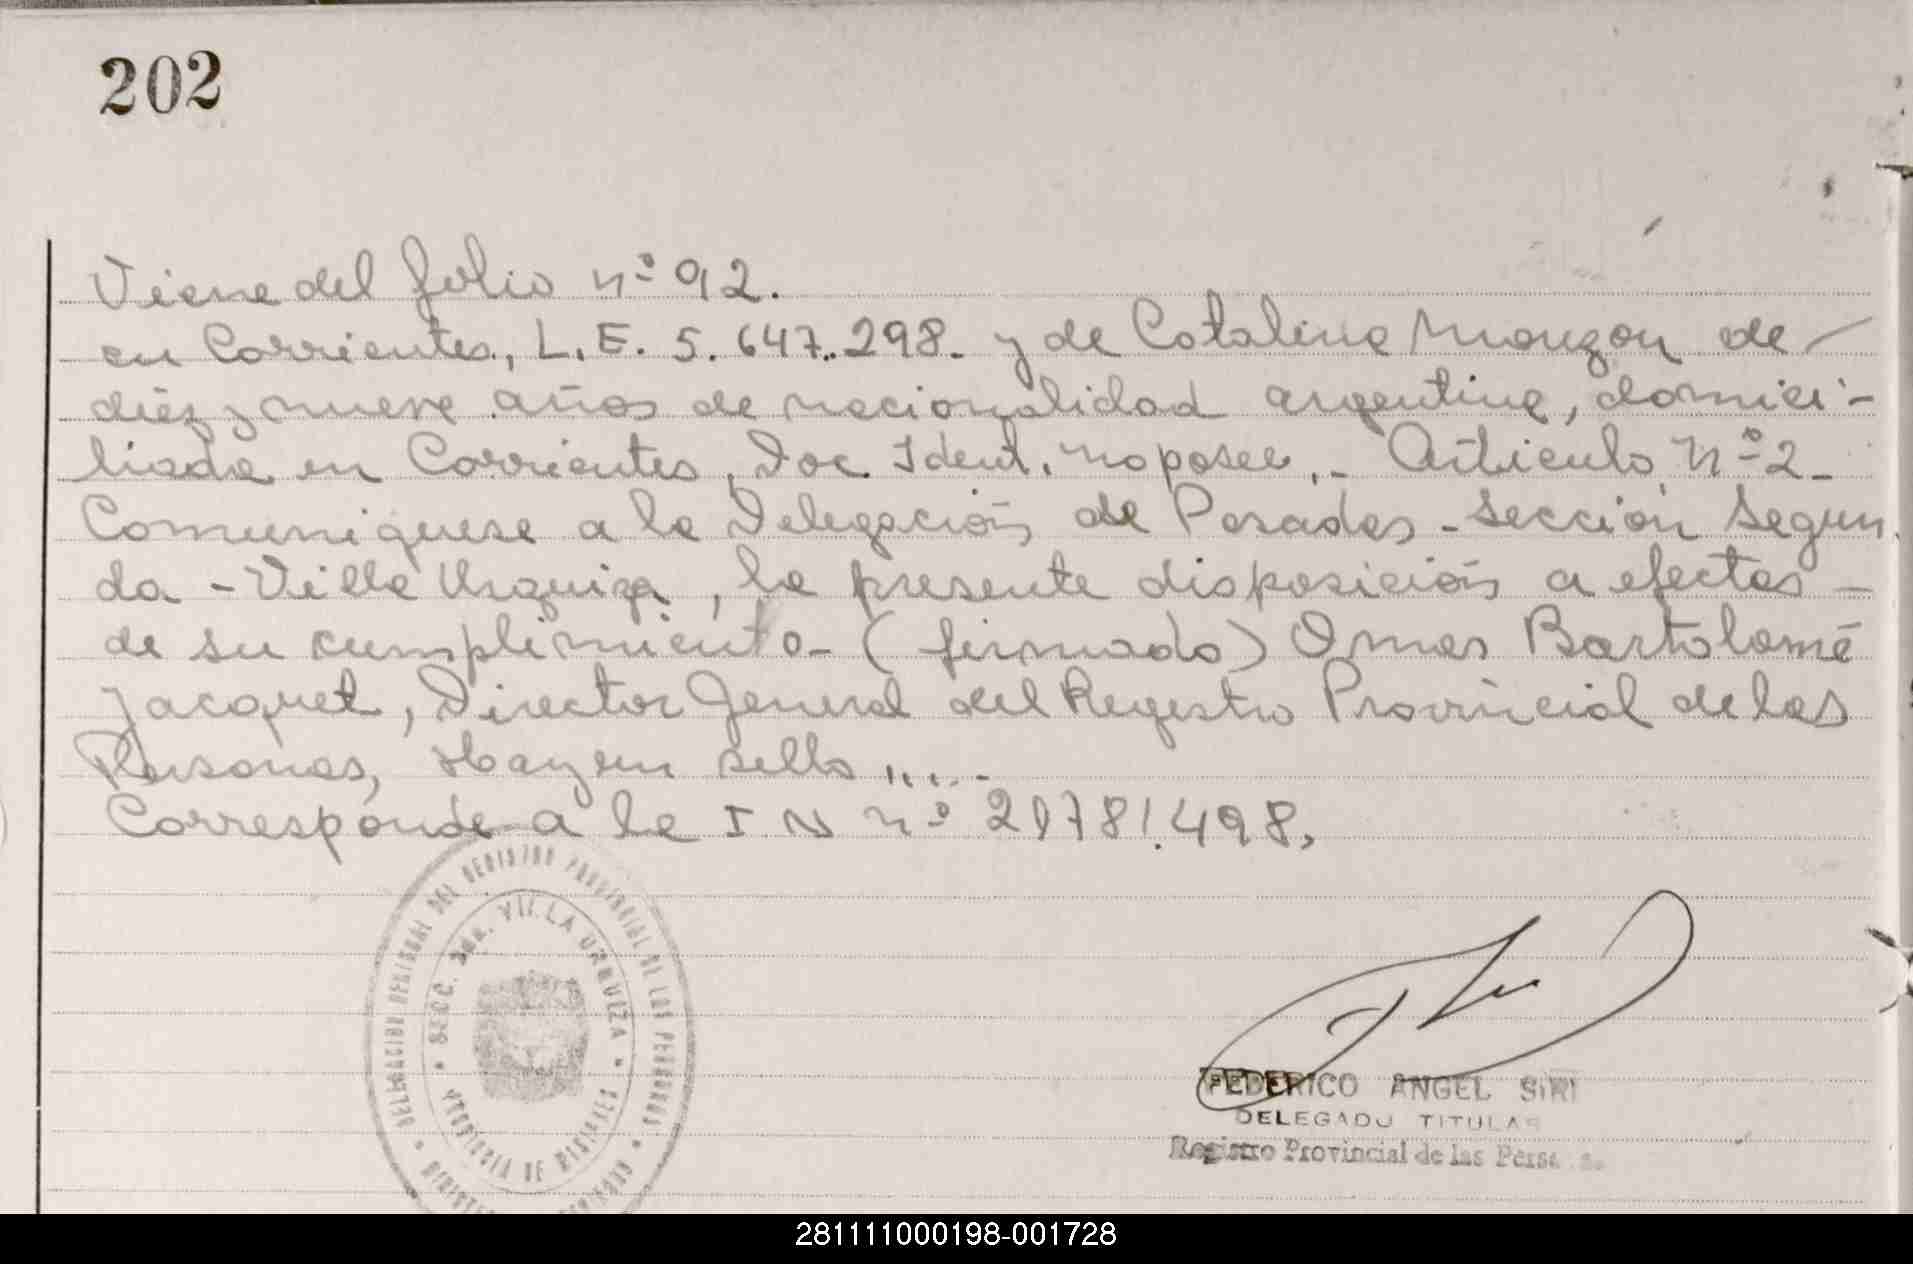 202
Viene del folio nº 92.
en Corrientes, L.E. 5.647.298. y de Catalina Monzon de
diez y nueve años de nacionalidad argentina, domici-
liada en Corrientes, Doc. Ident. no posee,.- Artículo Nº 2-
Comuniquese a la Delegación de Posadas - Sección Segun
da - Villa Urquiza, la presente disposición a efectos -
de su cumplimiento- (firmado) Omar Bartolomé
Jacquet, Director General del Registro Provincial de las
Personas, Hay un sello .....-
Corresponde a la I N nº
DELEGACION REGIONAL DEL REGISTRO PROVINCIAL DE LAS PERSONAS
SECC. 2da. VILLA URQUIZA
PROVINCIA DE MISIONES
FEDERICO ANGEL SIRI
DELEGADO TITULAR
Registro Provincial de las
281111000198-001728